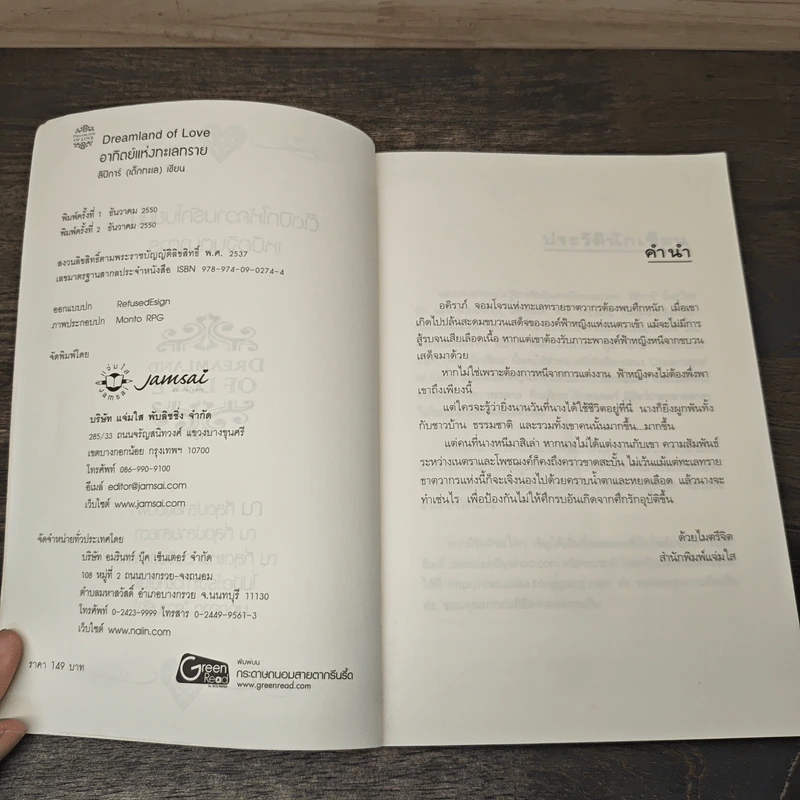 DREAMLAND OF LOVE
Dreamland of Love
อาทิตย์แห่งทะเลทราย
ลิปิการ์ (เด็กทะเล) เขียน
พิมพ์ครั้งที่ 1 ธันวาคม 2550
พิมพ์ครั้งที่ 2 ธันวาคม 2550
สงวนลิขสิทธิ์ตามพระราชบัญญัติลิขสิทธิ์ พ.ศ. 2537
เลขมาตรฐานสากลประจำหนังสือ ISBN 978-974-09-0274-4
ออกแบบปก RefusedEsign
ภาพประกอบปก Monto RPG
จัดพิมพ์โดย
แจ่มใส
jamsai
jamsai
บริษัท แจ่มใส พับลิชชิ่ง จำกัด
285/33 ถนนจรัญสนิทวงศ์ แขวงบางขุนศรี
เขตบางกอกน้อย กรุงเทพฯ 10700
โทรศัพท์ 086-990-9100
อีเมล์ editor@jamsai.com
เว็บไซต์ www.jamsai.com
จัดจำหน่ายทั่วประเทศโดย
บริษัท อมรินทร์ บุ๊ค เซ็นเตอร์ จำกัด
108 หมู่ที่ 2 ถนนบางกรวย-จงถนอม
ตำบลมหาสวัสดิ์ อำเภอบางกรวย จ.นนทบุรี 11130
โทรศัพท์ 0-2423-9999 โทรสาร 0-2449-9561-3
เว็บไซต์ www.naiin.com
ราคา 149 บาท
Green Read
พิมพ์บน
กระดาษถนอมสายตากรีนรี้ด
www.greenread.com
คำนำ
อคีราภ์ จอมโจรแห่งทะเลทรายธาตวากรต้องพบศึกหนัก เมื่อเขา
เกิดไปปล้นสะดมขบวนเสด็จขององค์ฟ้าหญิงแห่งเนตราเข้า แม้จะไม่มีการ
สู้รบจนเสียเลือดเนื้อ หากแต่เขาต้องรับภาระพาองค์ฟ้าหญิงหนีจากขบวน
เสด็จมาด้วย
หากไม่ใช่เพราะต้องการหนีจากการแต่งงาน ฟ้าหญิงคงไม่ต้องพึ่งพา
เขาถึงเพียงนี้
แต่ใครจะรู้ว่ายิ่งนานวันที่นางได้ใช้ชีวิตอยู่ที่นี่ นางก็ยิ่งผูกพันทั้ง
กับชาวบ้าน ธรรมชาติ และรวมทั้งเขาคนนั้นมากขึ้น...มากขึ้น
แต่คนที่นางหนีมาสิเล่า หากนางไม่ได้แต่งงานกับเขา ความสัมพันธ์
ระหว่างเนตราและโพชฌงค์ก็คงถึงคราวขาดสะบั้น ไม่เว้นแม้แต่ทะเลทราย
ธาตวากรแห่งนี้ก็จะเจิ่งนองไปด้วยคราบน้ำตาและหยดเลือด แล้วนางจะ
ทำเช่นไร เพื่อป้องกันไม่ให้ศึกรบอันเกิดจากศึกรักอุบัติขึ้น
ด้วยไมตรีจิต
สำนักพิมพ์แจ่มใส